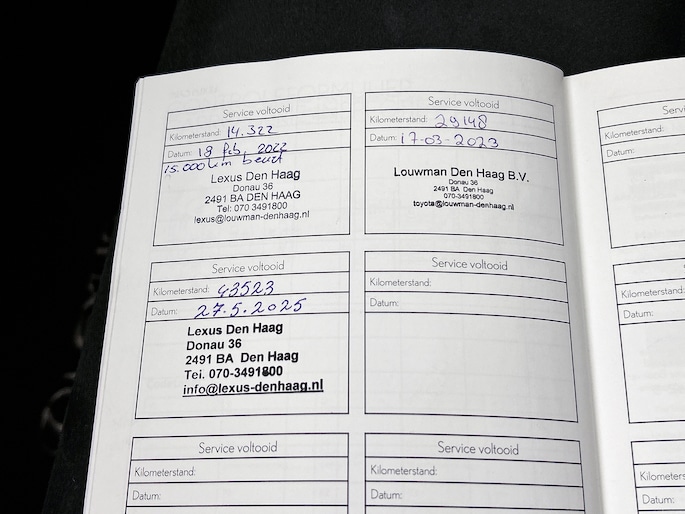 Service voltooid
Kilometerstand: 14.322
Datum: 18 feb, 2022
15.000 km beurt
Lexus Den Haag
Donau 36
2491 BA DEN HAAG
Tel: 070 3491800
lexus@louwman-denhaag.nl
Service voltooid
Kilometerstand: 29148
Datum: 17-03-2023
Louwman Den Haag B.V.
Donau 36
2491 BA Den Haag
070-3491800
toyota@louwman-denhaag.nl
Service voltooid
Kilometerstand: 43523
Datum: 27.5.2025
Lexus Den Haag
Donau 36
2491 BA Den Haag
Tel. 070-3491800
info@lexus-denhaag.nl
Service voltooid
Kilometerstand:
Datum:
Service voltooid
Kilometerstand:
Datum:
Service voltooid
Kilometerstand:
Datum:
Service
Kilometerstand:
Datum:
Kilometerstand:
Datum:
Datum: